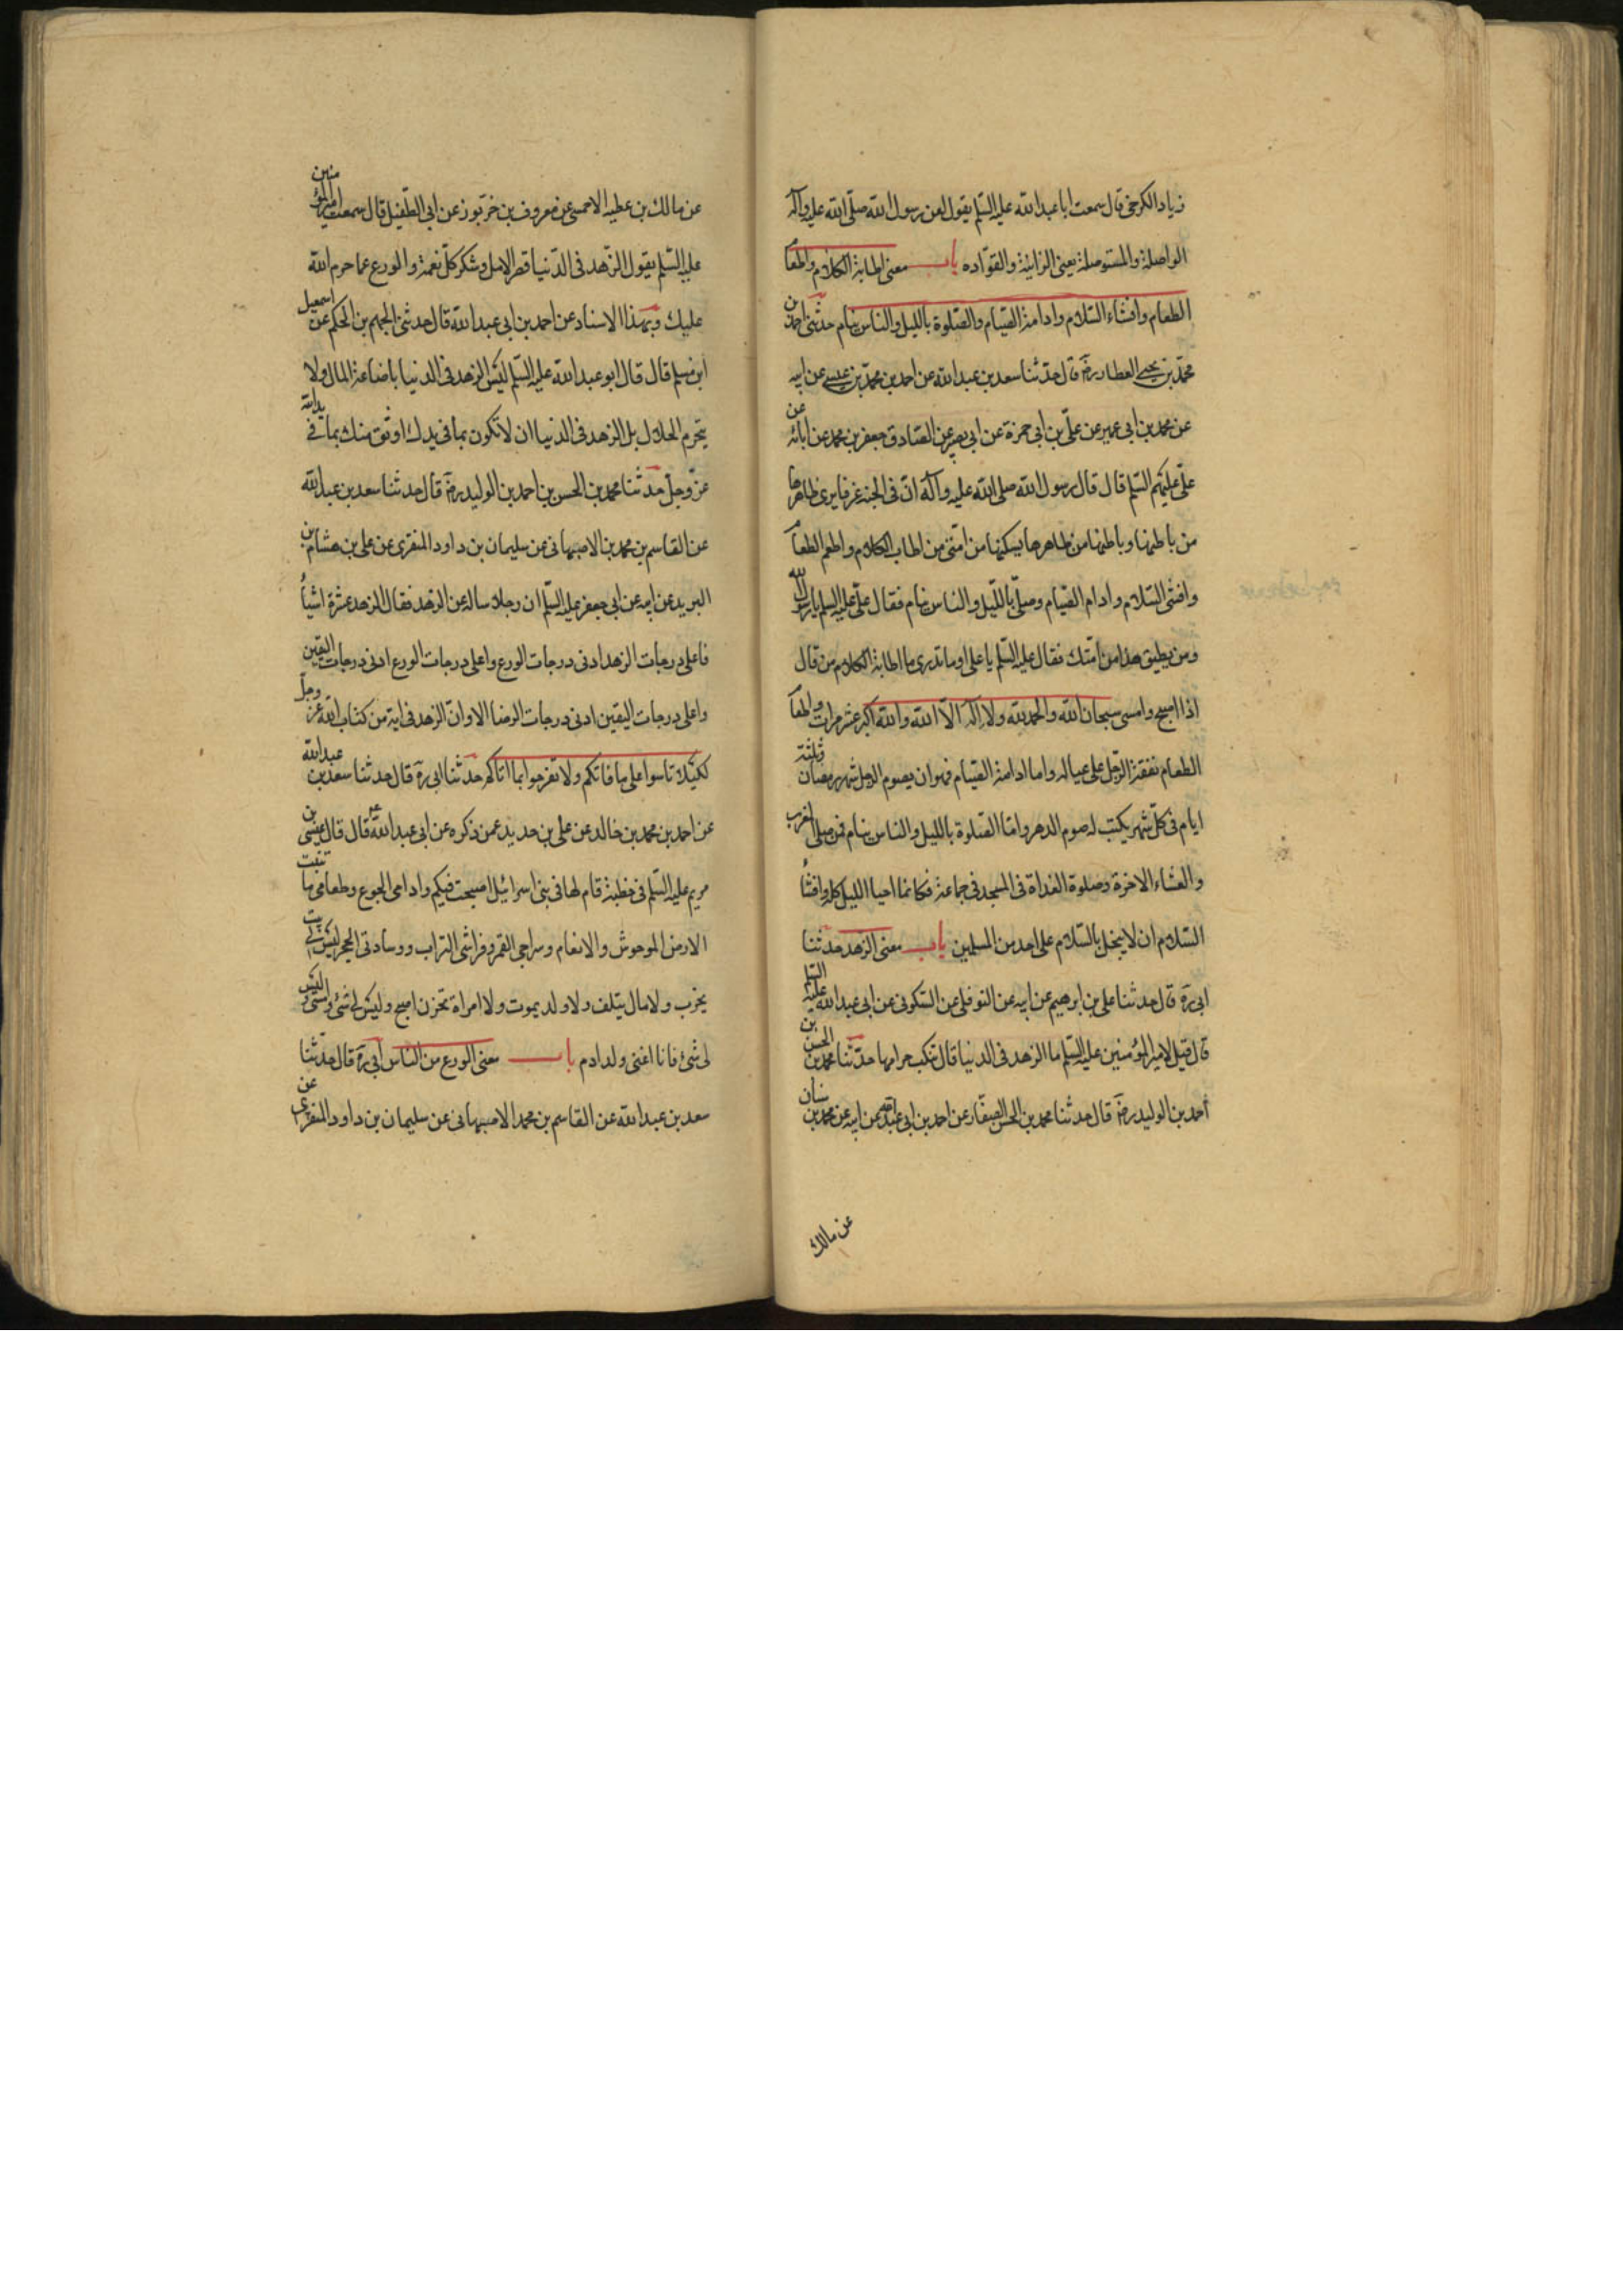 زياد الكرخى قال سمعت ابا عبد الله عليه السّلم يقول لعن رسول الله صلّى الله عليه وآله
الواصلة والمستوصلة يعنى الزانية والقوّاده باب معنى اطابة الكلام واطعام
الطعام وافشاء السّلام وادامة الصّيام والصّلوة بالليل والناس نيام حدّثنى احمد بن
محمّد بن يحيى العطار ره قال حدّثنا سعد بن عبد الله عن احمد بن محمّد بن عيسى عن ابيه
عن محمد بن ابى عمير عن علىّ بن ابى حمزة عن ابى بصير عن الصّادق جعفر بن محمد عن ابائه عن
علىّ عليهم السّلم قال قال رسول الله صلى الله عليه وآله انّ فى الجنة غرفا يرى ظاهرها
من باطنها وباطنها من ظاهرها يسكنها من امتى من اطاب الكلام واطعم الطعام
وافشى السّلام وادام الصّيام وصلّى بالليل والناس نيام فقال علىّ عليه السلم يا رسول الله
ومن يطيق هذا من امّتك فقال عليه السّلم يا على اوما تدرى ما اطابة الكلام من قال
اذا اصبح وامسى سبحان الله والحمد لله ولا اله الّا الله والله اكبر عشر مرات واطعام
الطعام نفقة الرّجل على عياله واما ادامة الصّيام فهو ان يصوم الرجل شهر رمضان وثلثة
ايام فى كلّ شهر يكتب له صوم الدهر وامّا الصّلوة بالليل والناس نيام فمن صلى المغرب
والعشاء الاخرة وصلوة الغداة فى المسجد فى جماعة فكانما احيا الليل كله وافشاء
السّلام ان لا يبخل بالسّلام على احد من المسلمين باب معنى الزهد حدثنا
ابى ره قال حدثنا على بن ابرهيم عن ابيه عن النوفلى عن السّكونى عن ابى عبد الله عليه السّلم
قال قيل لامير المؤمنين عليه السّلم ما الزهد فى الدنيا قال تنكب حرامها حدّثنا محمد بن الحسن بن
أحمد بن الوليد ره قال حدثنا محمد بن الحسن الصفّار عن احمد بن ابى عبد الله عن ابيه عن محمد بن سنان
عن مالك
عن مالك بن عطيه الاحمسى عن معروف بن خرّبوذ عن ابى الطّفيل قال سمعت امير المؤمنين
عليه السّلم يقول الزّهد فى الدّنيا قصر الامل وشكر كلّ نعمة والورع عما حرم الله
عليك وبهذا الاسناد عن احمد بن ابى عبد الله قال حدثنى الجهم بن الحكم عن اسمعيل
ابن مسلم قال قال ابو عبد الله عليه السّلم ليس الزهد فى الدنيا باضاعة المال ولا
يتحرم الحلال بل الزهد فى الدنيا ان لا تكون بما فى يدك اوثق منك بما فى يد الله
عزّ وجلّ حدّثنا محمد بن الحسن بن احمد بن الوليد ره قال حدثنا سعد بن عبد الله
عن القاسم بن محمد بن الاصبهانى عن سليمان بن داود المنقرى عن على بن هشام بن
البريد عن ابيه عن ابى جعفر عليه السّلم ان رجلا ساله عن الزهد فقال الزهد عشرة اشياء
فاعلى درجات الزهد ادنى درجات الورع واعلى درجات الورع ادنى درجات اليقين
واعلى درجات اليقين ادنى درجات الرضا الا وانّ الزهد فى اية من كتاب الله عز وجلّ
لكيلا تاسوا على ما فاتكم ولا تفرحوا بما اتاكم حدّثنا ابى ره قال حدثنا سعد بن عبد الله
عن احمد بن محمد بن خالد عن على بن حديد عمن ذكره عن ابى عبد الله ع قال قال عيسى بن
مريم عليه السّلم فى خطبة قام لها فى بنى اسرائيل اصبحت فيكم وادامى الجوع وطعامى ما تنبت
الارض للوحوش والانعام وسراجى القمر وفراشى التراب ووسادتى الحجر ليس لى بيت
يخرب ولا مال يتلف ولا ولد يموت ولا امراة تحزن اصبح وليس لى شئ وامسى وليس
لى شئ فانا اغنى ولد ادم باب معنى الورع من الناس ابى ره قال حدّثنا
سعد بن عبد الله عن القاسم بن محمد الاصبهانى عن سليمان بن داود المنقرى عن